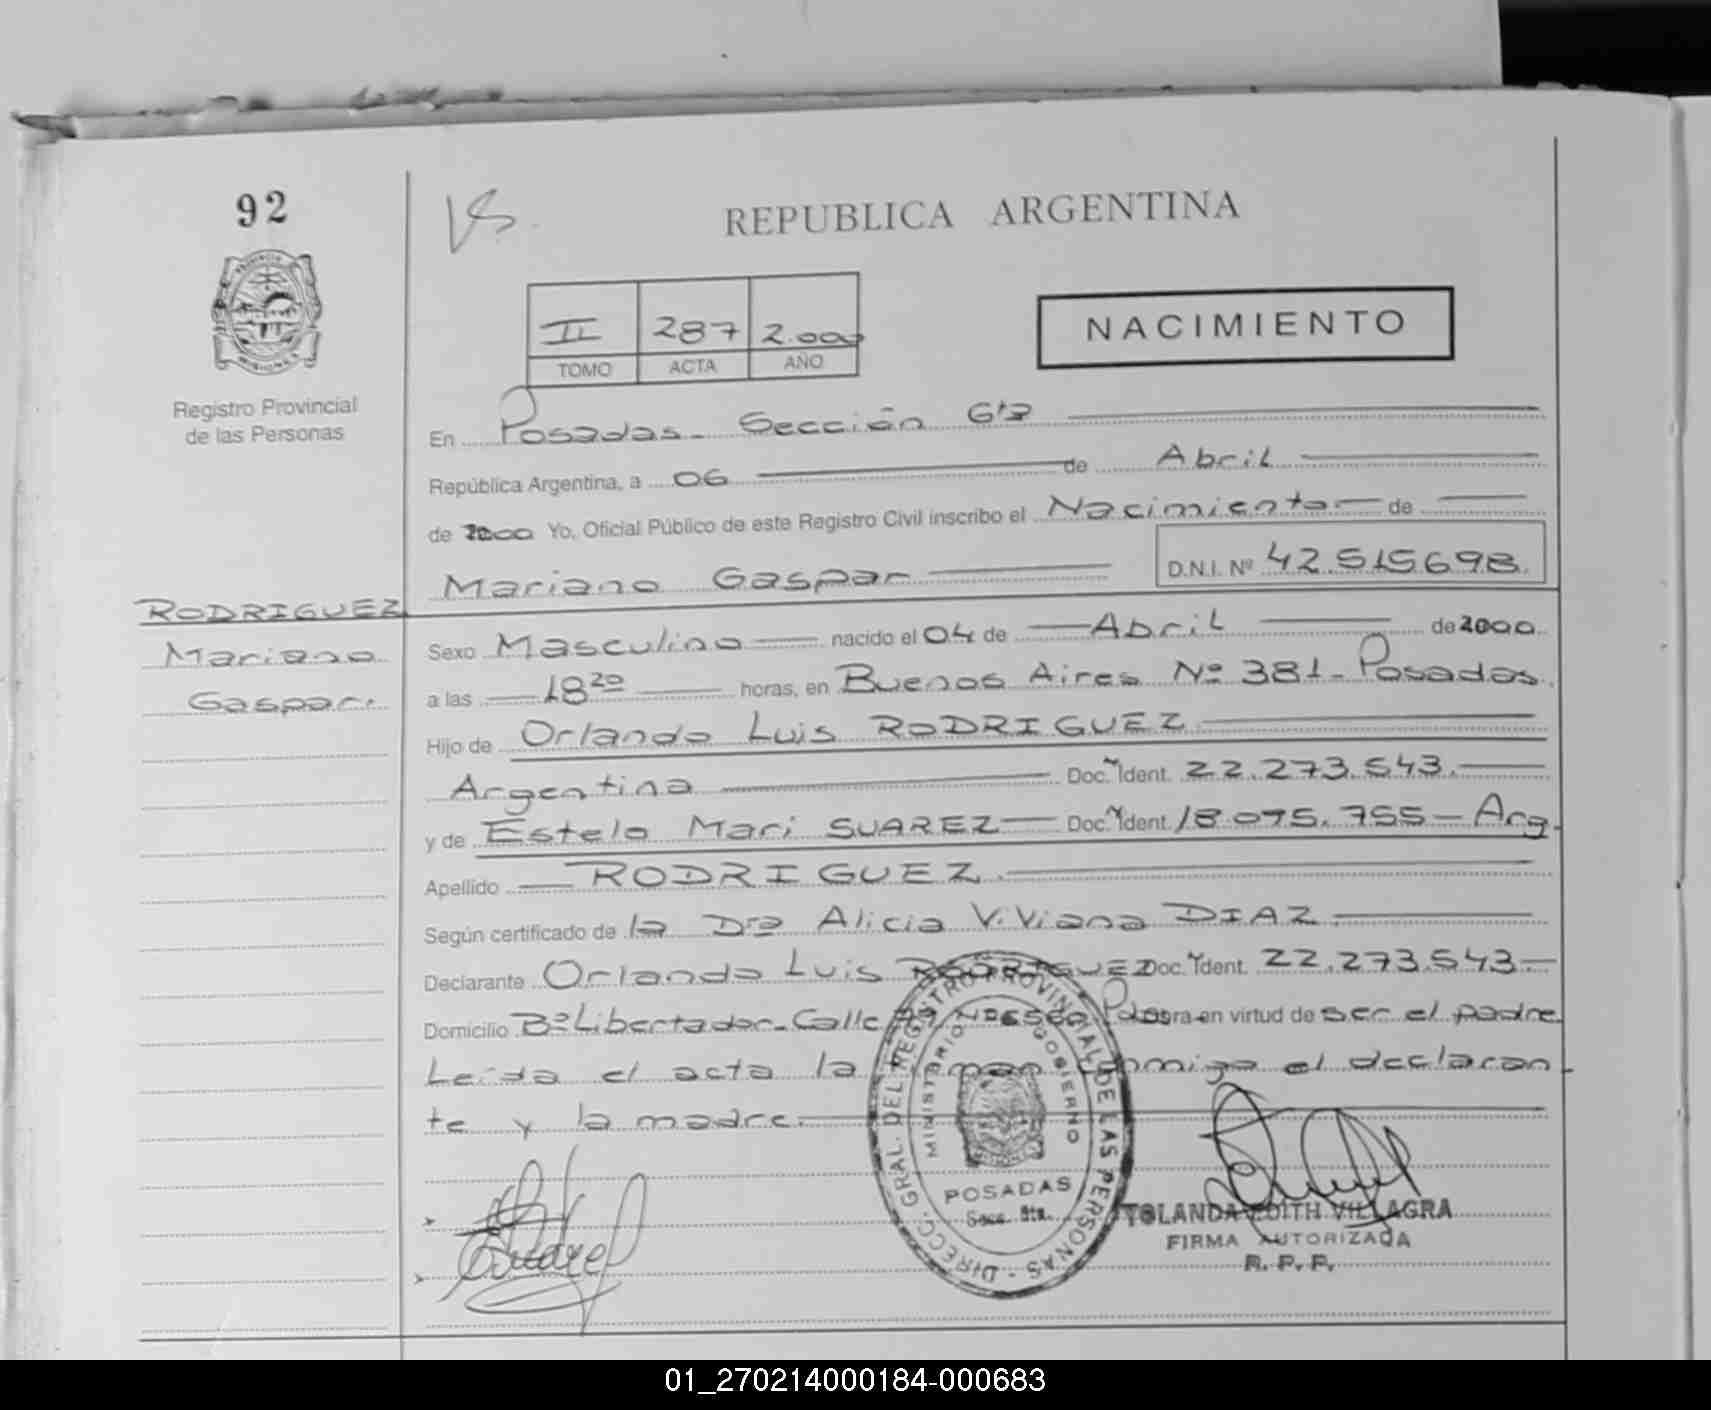 92
VS.
REPUBLICA ARGENTINA
PROVINCIA
MISIONES
Registro Provincial
de las Personas
II 287 2.000
TOMO ACTA AÑO
NACIMIENTO
En Posadas - Sección 6ta
República Argentina, a 06 de Abril
de 2000 Yo, Oficial Público de este Registro Civil inscribo el Nacimiento de
Mariano Gaspar D.N.I. Nº 42.515.698.
RODRIGUEZ
Mariano
Gaspar.
Sexo Masculino nacido el 04 de Abril de 2000
a las 18 20 horas, en Buenos Aires Nº 381 - Posadas
Hijo de Orlando Luis RODRIGUEZ
Argentina Doc. Ident. 22.273.543.
y de Estela Mari SUAREZ Doc. Ident. 18.075.755 - Arg.
Apellido RODRIGUEZ.
Según certificado de la Dra Alicia Viviana DIAZ
Declarante Orlando Luis RODRIGUEZ Doc. Ident. 22.273.543.-
Domicilio Bº Libertador - Calle en virtud de ser el padre
Leída el acta la firman conmigo el declaran-
te y la madre.
Suarez
DIRECC. GRAL. DEL REGISTRO PROVINCIAL DE LAS PERSONAS
MINISTERIO GOBIERNO
POSADAS
Secc. 6ta.
YOLANDA EDITH VILLAGRA
FIRMA AUTORIZADA
R. P. P.
01_270214000184-000683